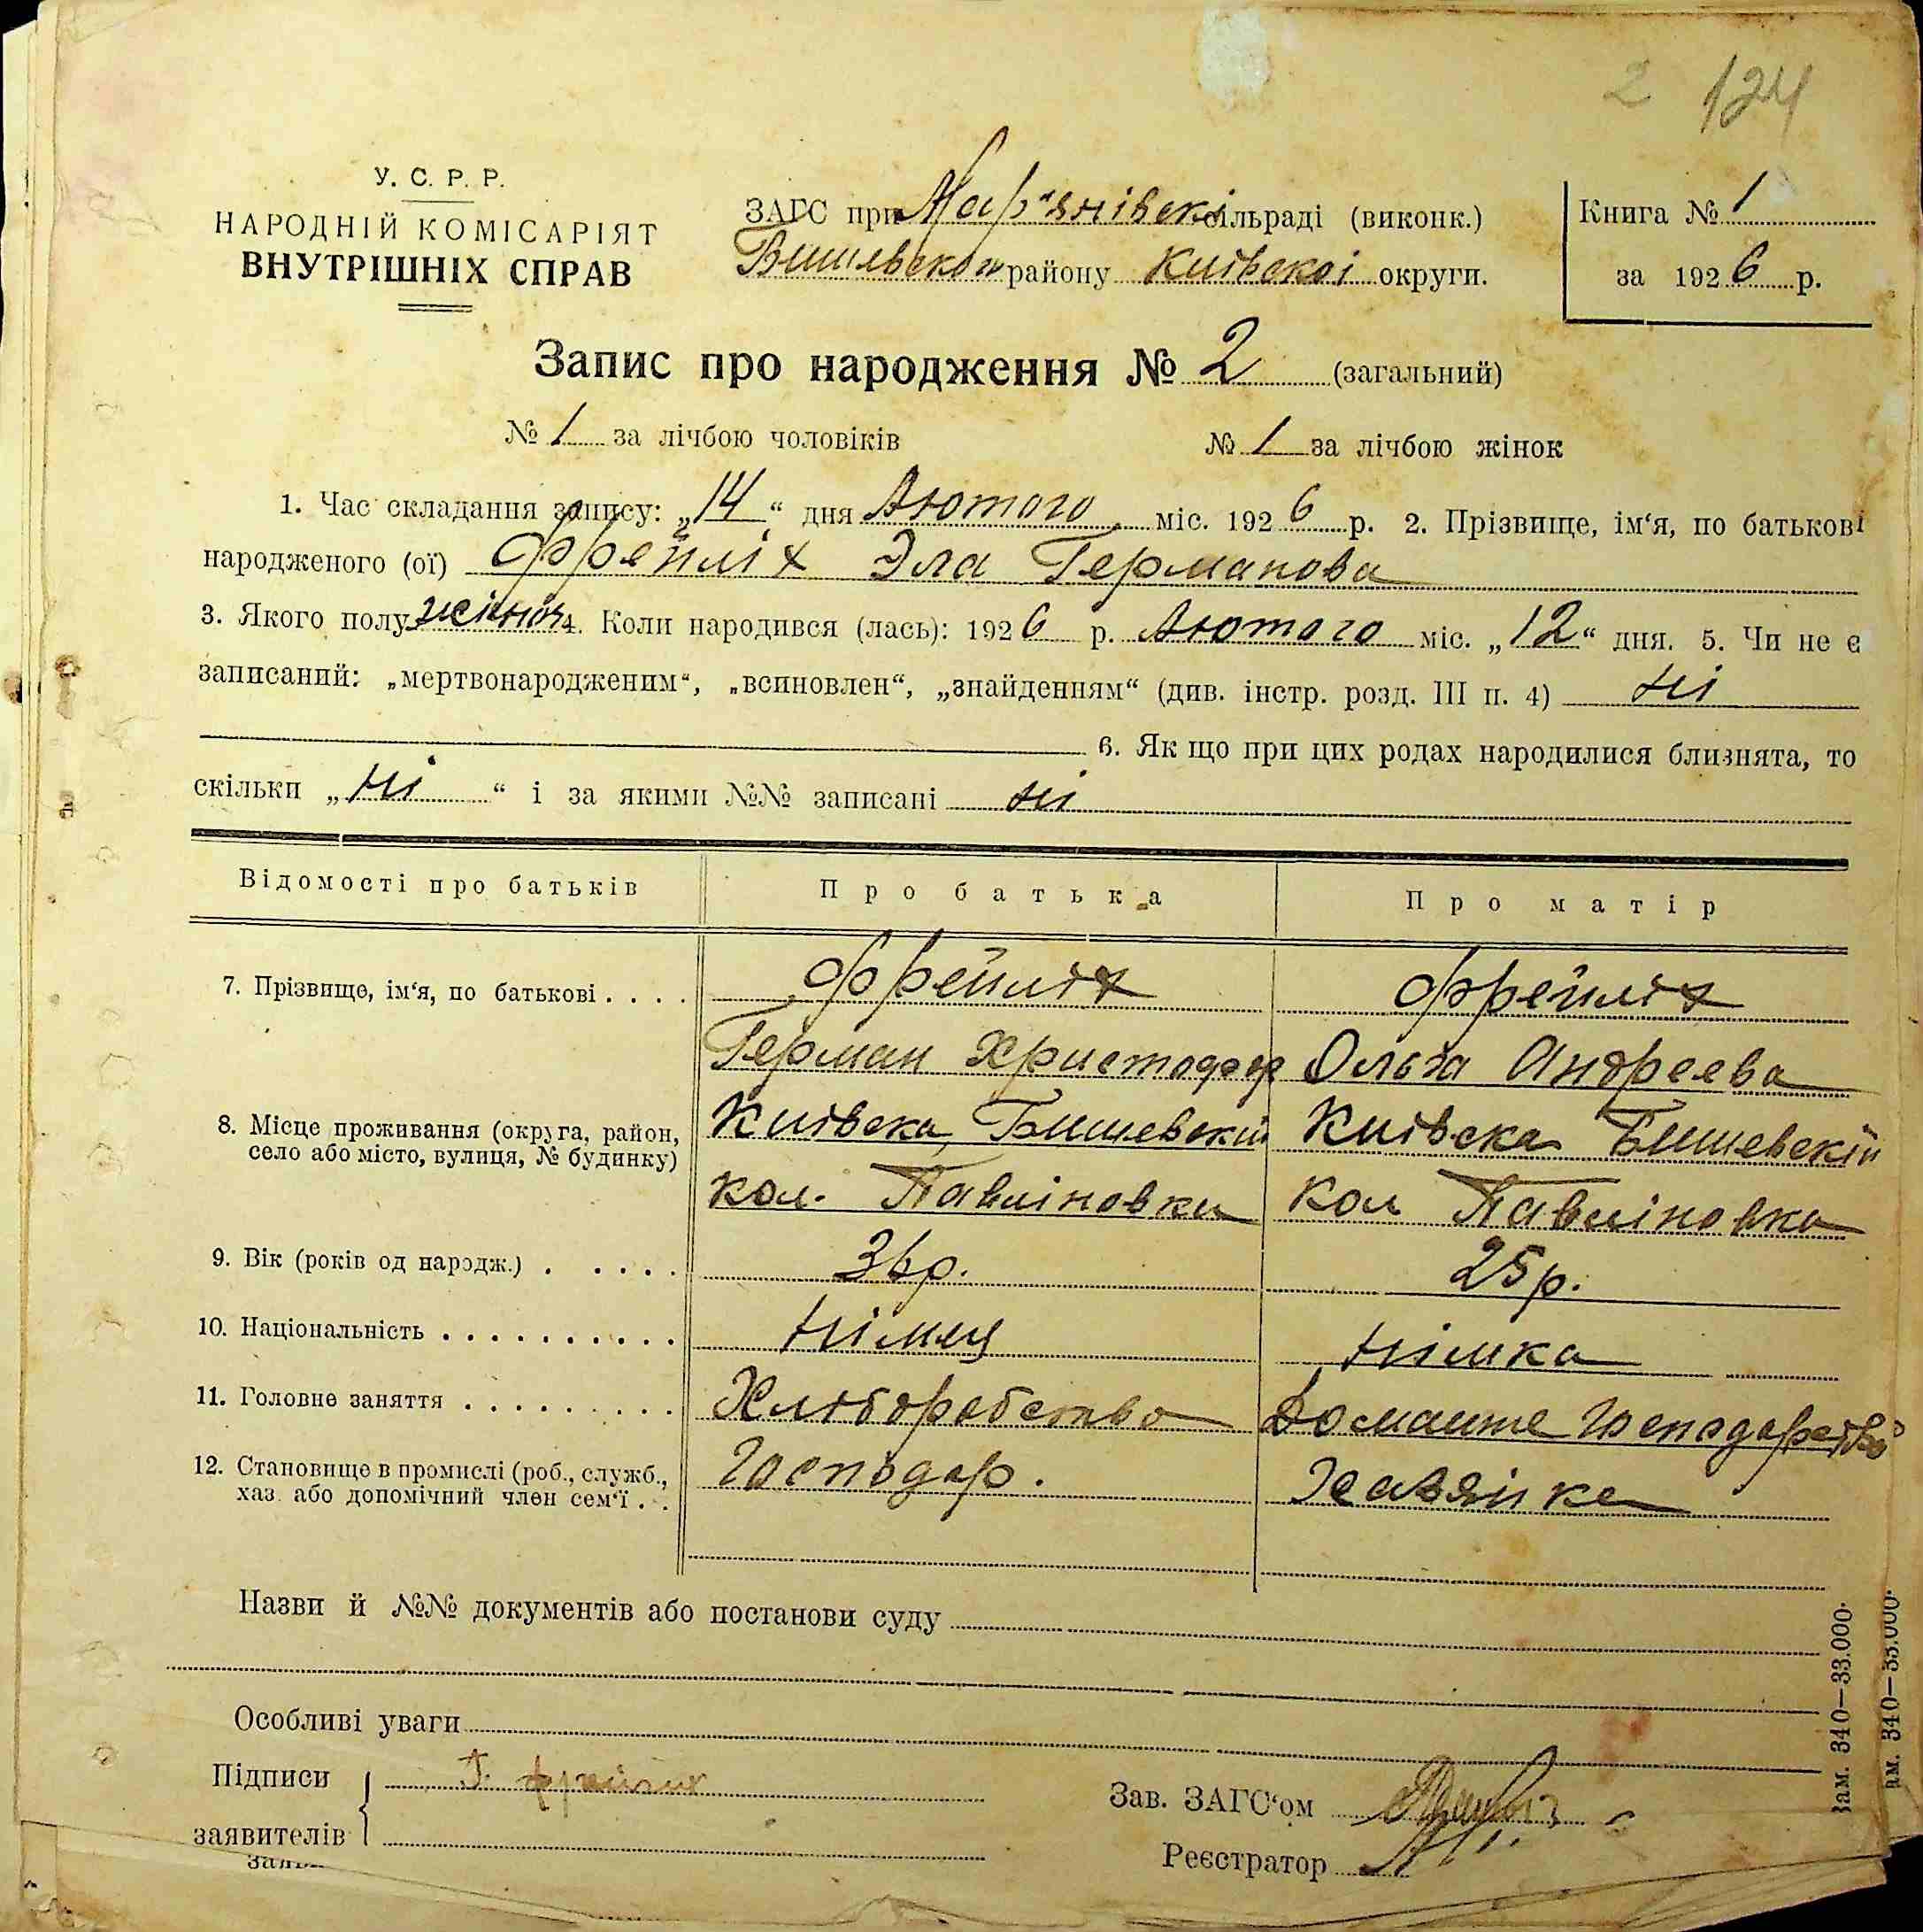 2 124
У. С. Р. Р.
НАРОДНІЙ КОМІСАРІЯТ
ВНУТРІШНІХ СПРАВ
ЗАГС при Мар'янівскі сільраді (виконк.)
Бишевской району Київскоі округи.
Книга № 1
за 1926 р.
Запис про народження № 2 (загальний)
№ 1 за лічбою чоловіків № 1 за лічбою жінок
1. Час складання запису: „14“ дня Лютого міс. 1926 р. 2. Прізвище, ім‘я, по батькові
народженого (ої) Фрейліх Эла Германова
3. Якого полу жіноч 4. Коли народився (лась): 1926 р. Лютого міс. „12“ дня. 5. Чи не є
записаний: „мертвонародженим“, „всиновлен“, „знайденням“ (див. інстр. розд. III п. 4) ні
6. Як що при цих родах народилися близнята, то
скільки „ні“ і за якими №№ записані ні
Відомості про батьків Про батька Про матір
7. Прізвище, ім‘я, по батькові . . . . Фрейліх Фрейліх
Герман Христофор Ольга Андреева
8. Місце проживання (округа, район, Київска Бишевский Київска Бишевскій
село або місто, вулиця, № будинку)
кол. Павліновки кол Павліновка
9. Вік (років од народж.) . . . . . 36р. 25р.
10. Національність . . . . . . . . . . Німец Німка
11. Головне заняття . . . . . . . . . Хліборобство Домашне Господарство
12. Становище в промислі (роб., служб., Господар. Хазяйка
хаз. або допомічний член сем‘ї . .
Назви й №№ документів або постанови суду
Особливі уваги
Підписи Г. Фрейлик
заявителів
Зав. ЗАГС‘ом
Реєстратор
Зам. 340—33.000.
ам. 340—33.000.